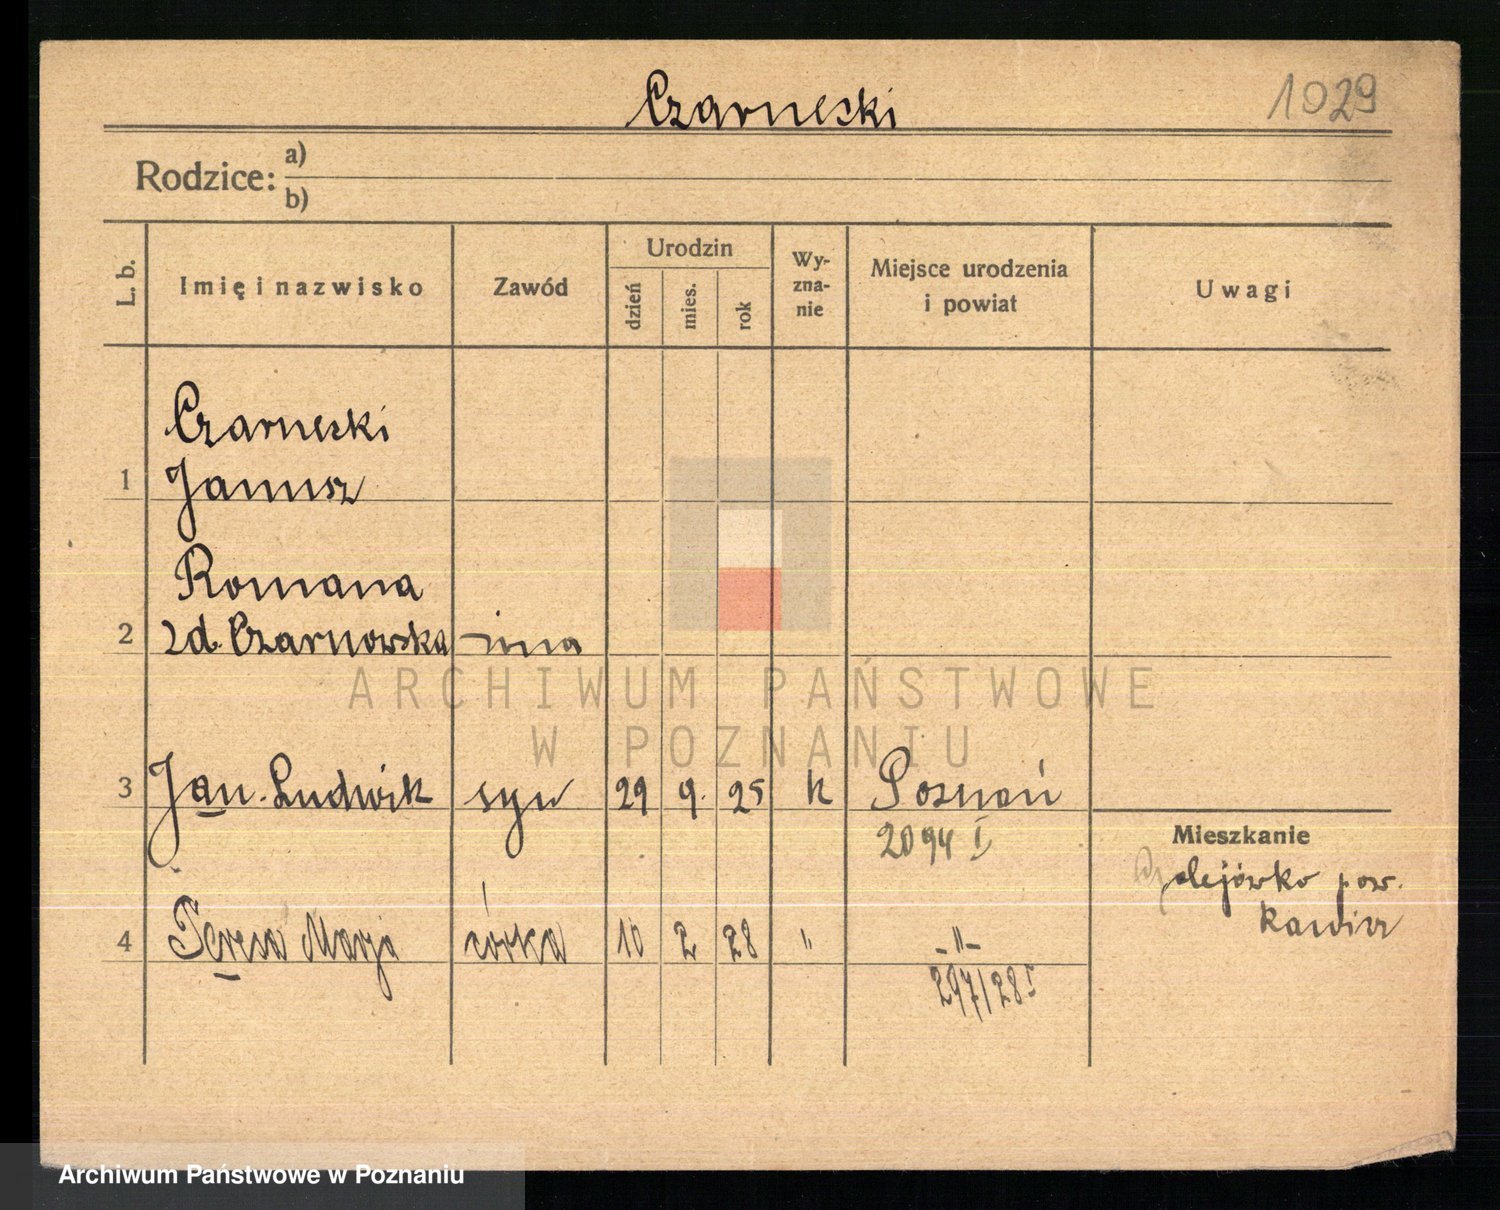 Czarnecki
1029
Rodzice:
a)
b)
L. b.
Imię i nazwisko
Zawód
Urodzin
dzień
mies.
rok
Wy-
zna-
nie
Miejsce urodzenia
i powiat
Uwagi
Czarnecki
1 Janusz
Romana
2 zd. Czarnowska żona
3 Jan Ludwik syn 29 9. 25 k Poznań
2094 I
Mieszkanie
pow.
Rawicz
4 Teresa Marja córka 10 2 28 " -"-
297/28 I
ARCHIWUM PAŃSTWOWE
W POZNANIU
Archiwum Państwowe w Poznaniu